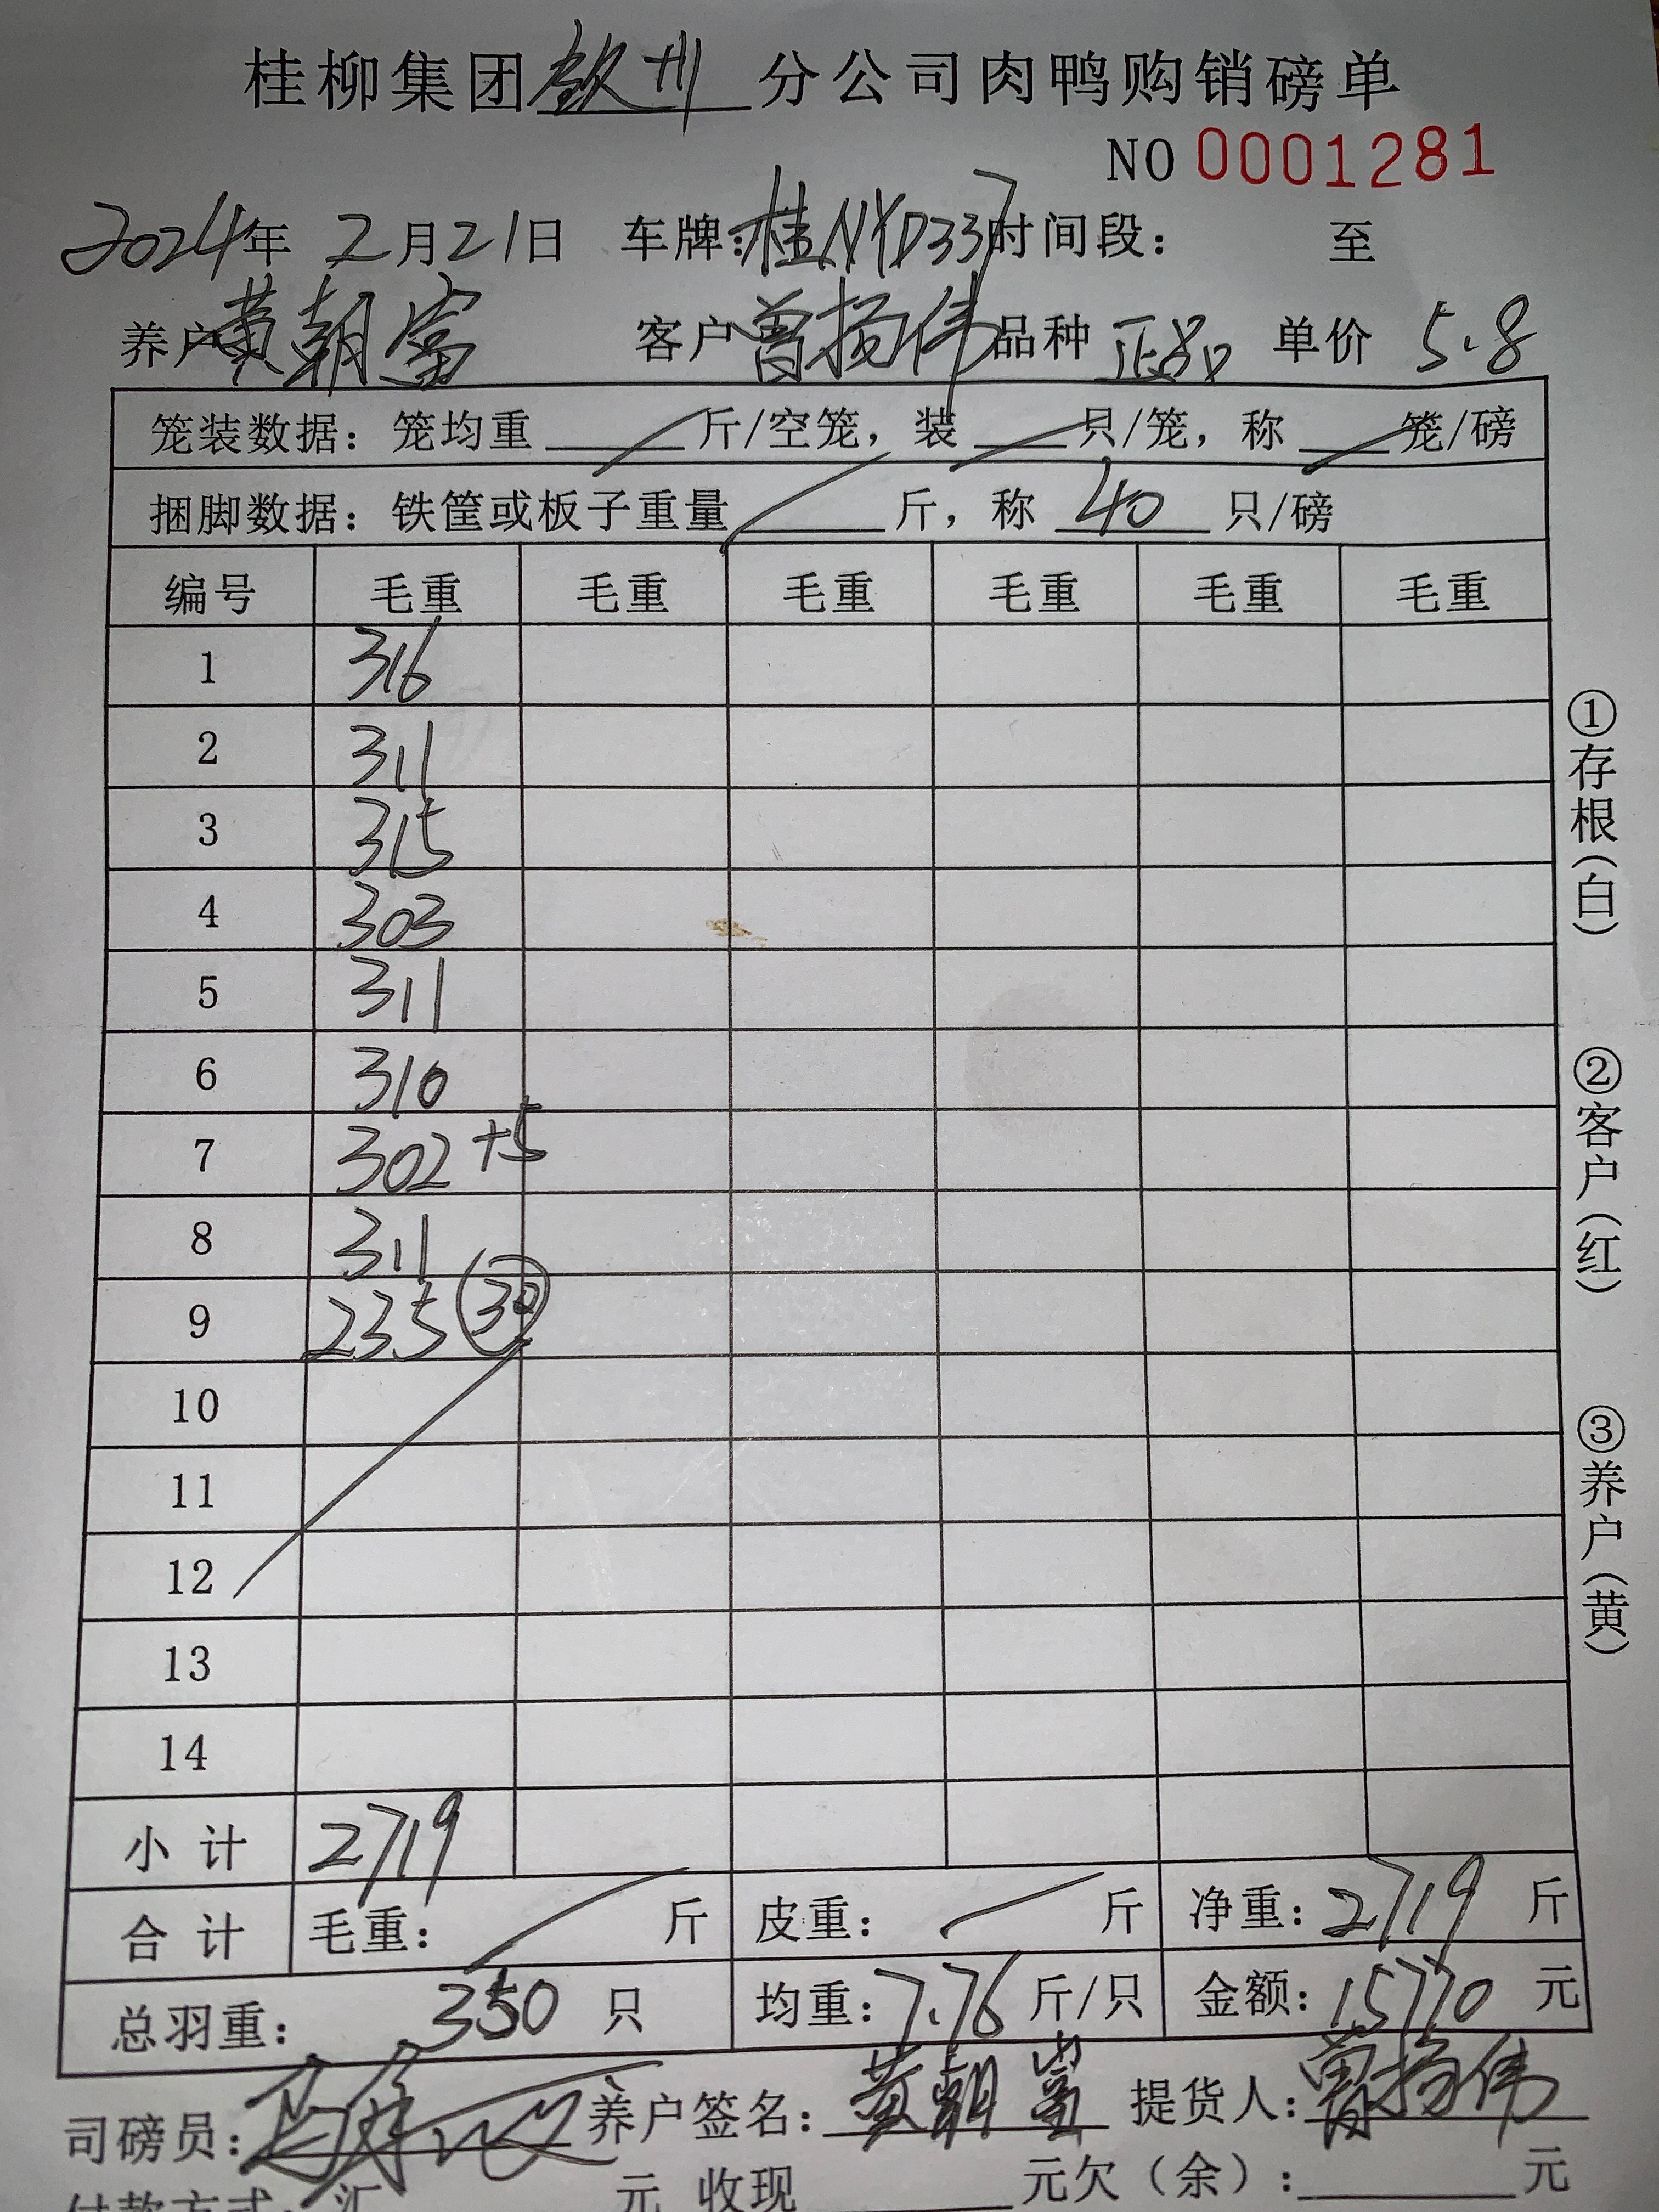 桂柳集团钦州分公司肉鸭购销磅单
NO 0001281
2024年 2月21日 车牌:桂NYD337 时间段: 至
养户 黄朝富 客户 曾扬伟 品种 正品 单价 5.8
笼装数据: 笼均重 斤/空笼, 装 只/笼, 称 笼/磅
捆脚数据: 铁筐或板子重量 斤, 称 40 只/磅
编号 毛重 毛重 毛重 毛重 毛重 毛重
1 316
2 311
3 315
4 303
5 311
6 310
7 302 +5
8 311
9 235 30
10
11
12
13
14
小计 2719
合计 毛重: 斤 皮重: 斤 净重: 2719 斤
总羽重: 350 只 均重: 7.76 斤/只 金额: 15770 元
司磅员: 养户签名: 黄朝富 提货人: 曾扬伟
付款方式: 汇 元 收现 元欠(余): 元
①存根(白)
②客户(红)
③养户(黄)